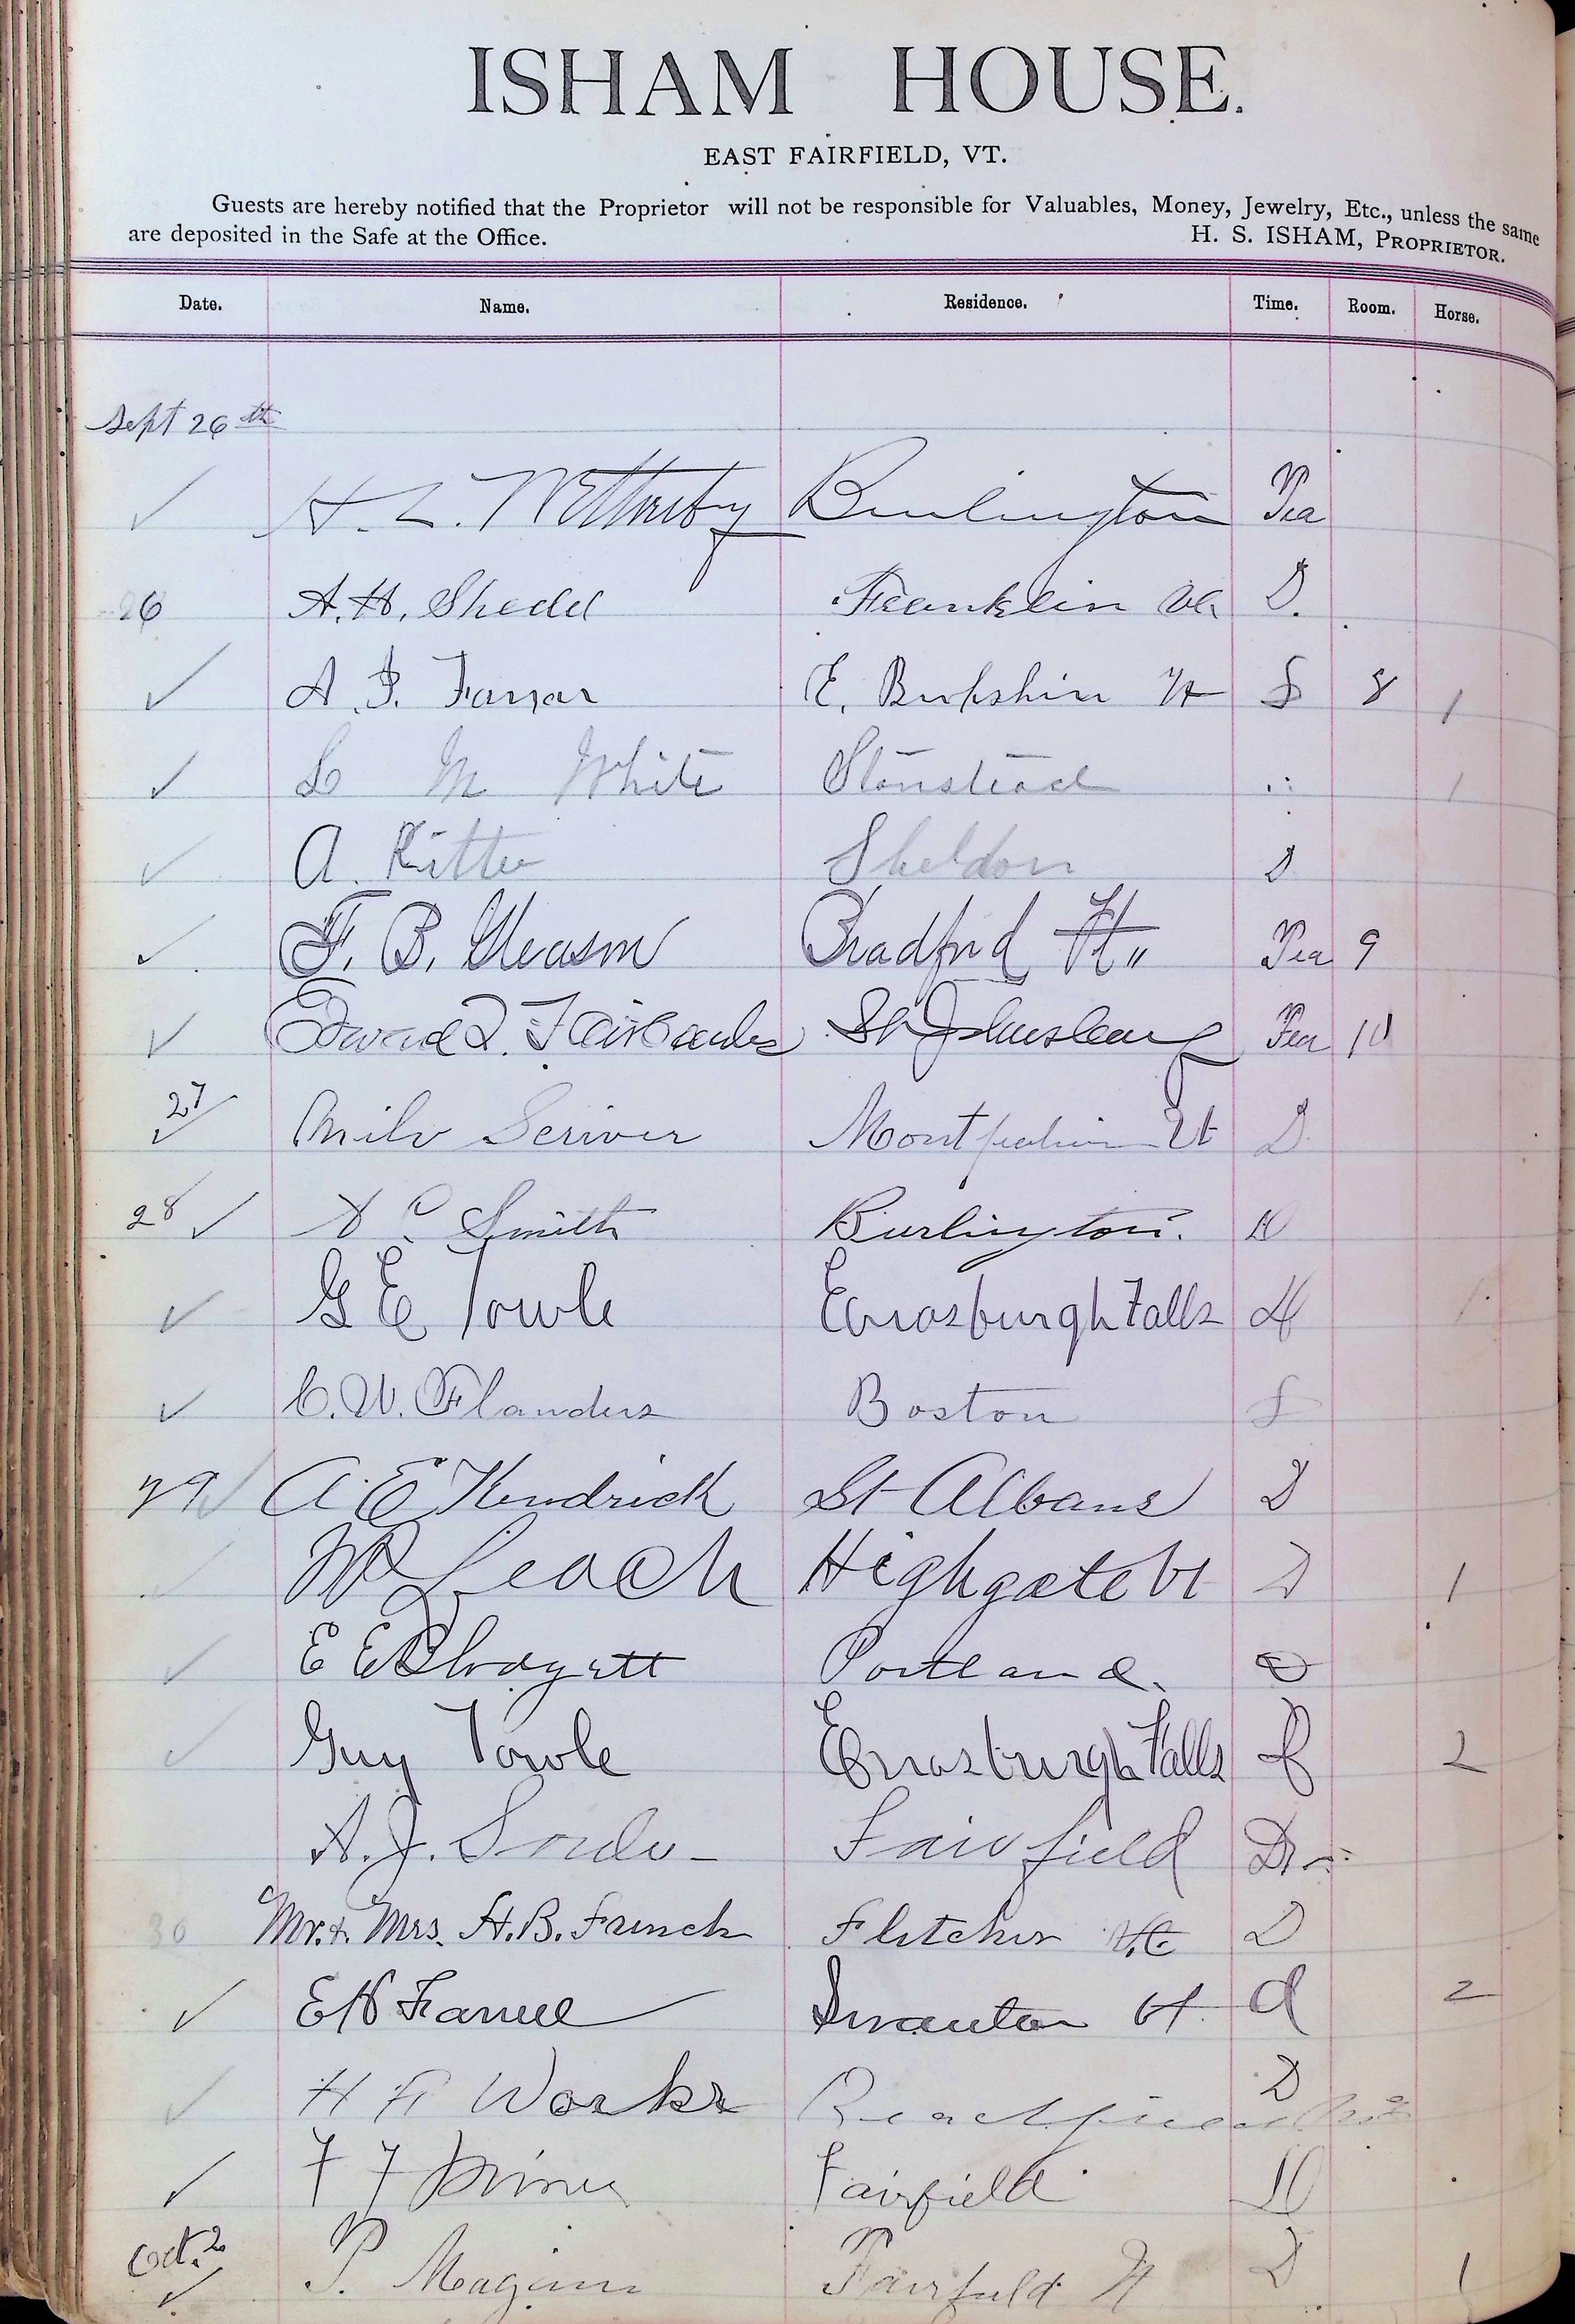 ISHAM HOUSE.
EAST FAIRFIELD, VT.
Guests are hereby notified that the Proprietor will not be responsible for Valuables, Money, Jewelry, Etc., unless the same
are deposited in the Safe at the Office.
H. S. ISHAM, PROPRIETOR.
Date. Name. Residence. Time. Room. Horse.
Sept 26th
✓ H. L. Wetherby Burlington Tea
26 A. H. Shedd Franklin Vt D.
✓ A. F. Farrar E. Berkshire Vt S 8 1
✓ L M White Stanstead 1
✓ A. Sheldon D
✓ F. B. Gleason Bradford Vt " Tea 9
✓ Edward T. Fairbanks St Johnsbury Tea 10
27 ✓ Milo Scriver Montpelier Vt D.
28 ✓ Smith Burlington. D
✓ G E Towle Enosburgh Falls D
✓ C. W. Flanders Boston S
29 ✓ A E Kendrick St Albans D
✓ Leach Highgate Vt D 1
✓ E E Portland. D
✓ Guy Towle Enosburgh Falls 2
A. J. Soule - Fairfield
30 Mr. & Mrs. H. B. Fletcher Vt. D
✓ E H Swanton Vt d 2
✓ Works D
✓ F F Fairfield D
Oct. 2 ✓ P. Maginn Fairfield Vt D 1